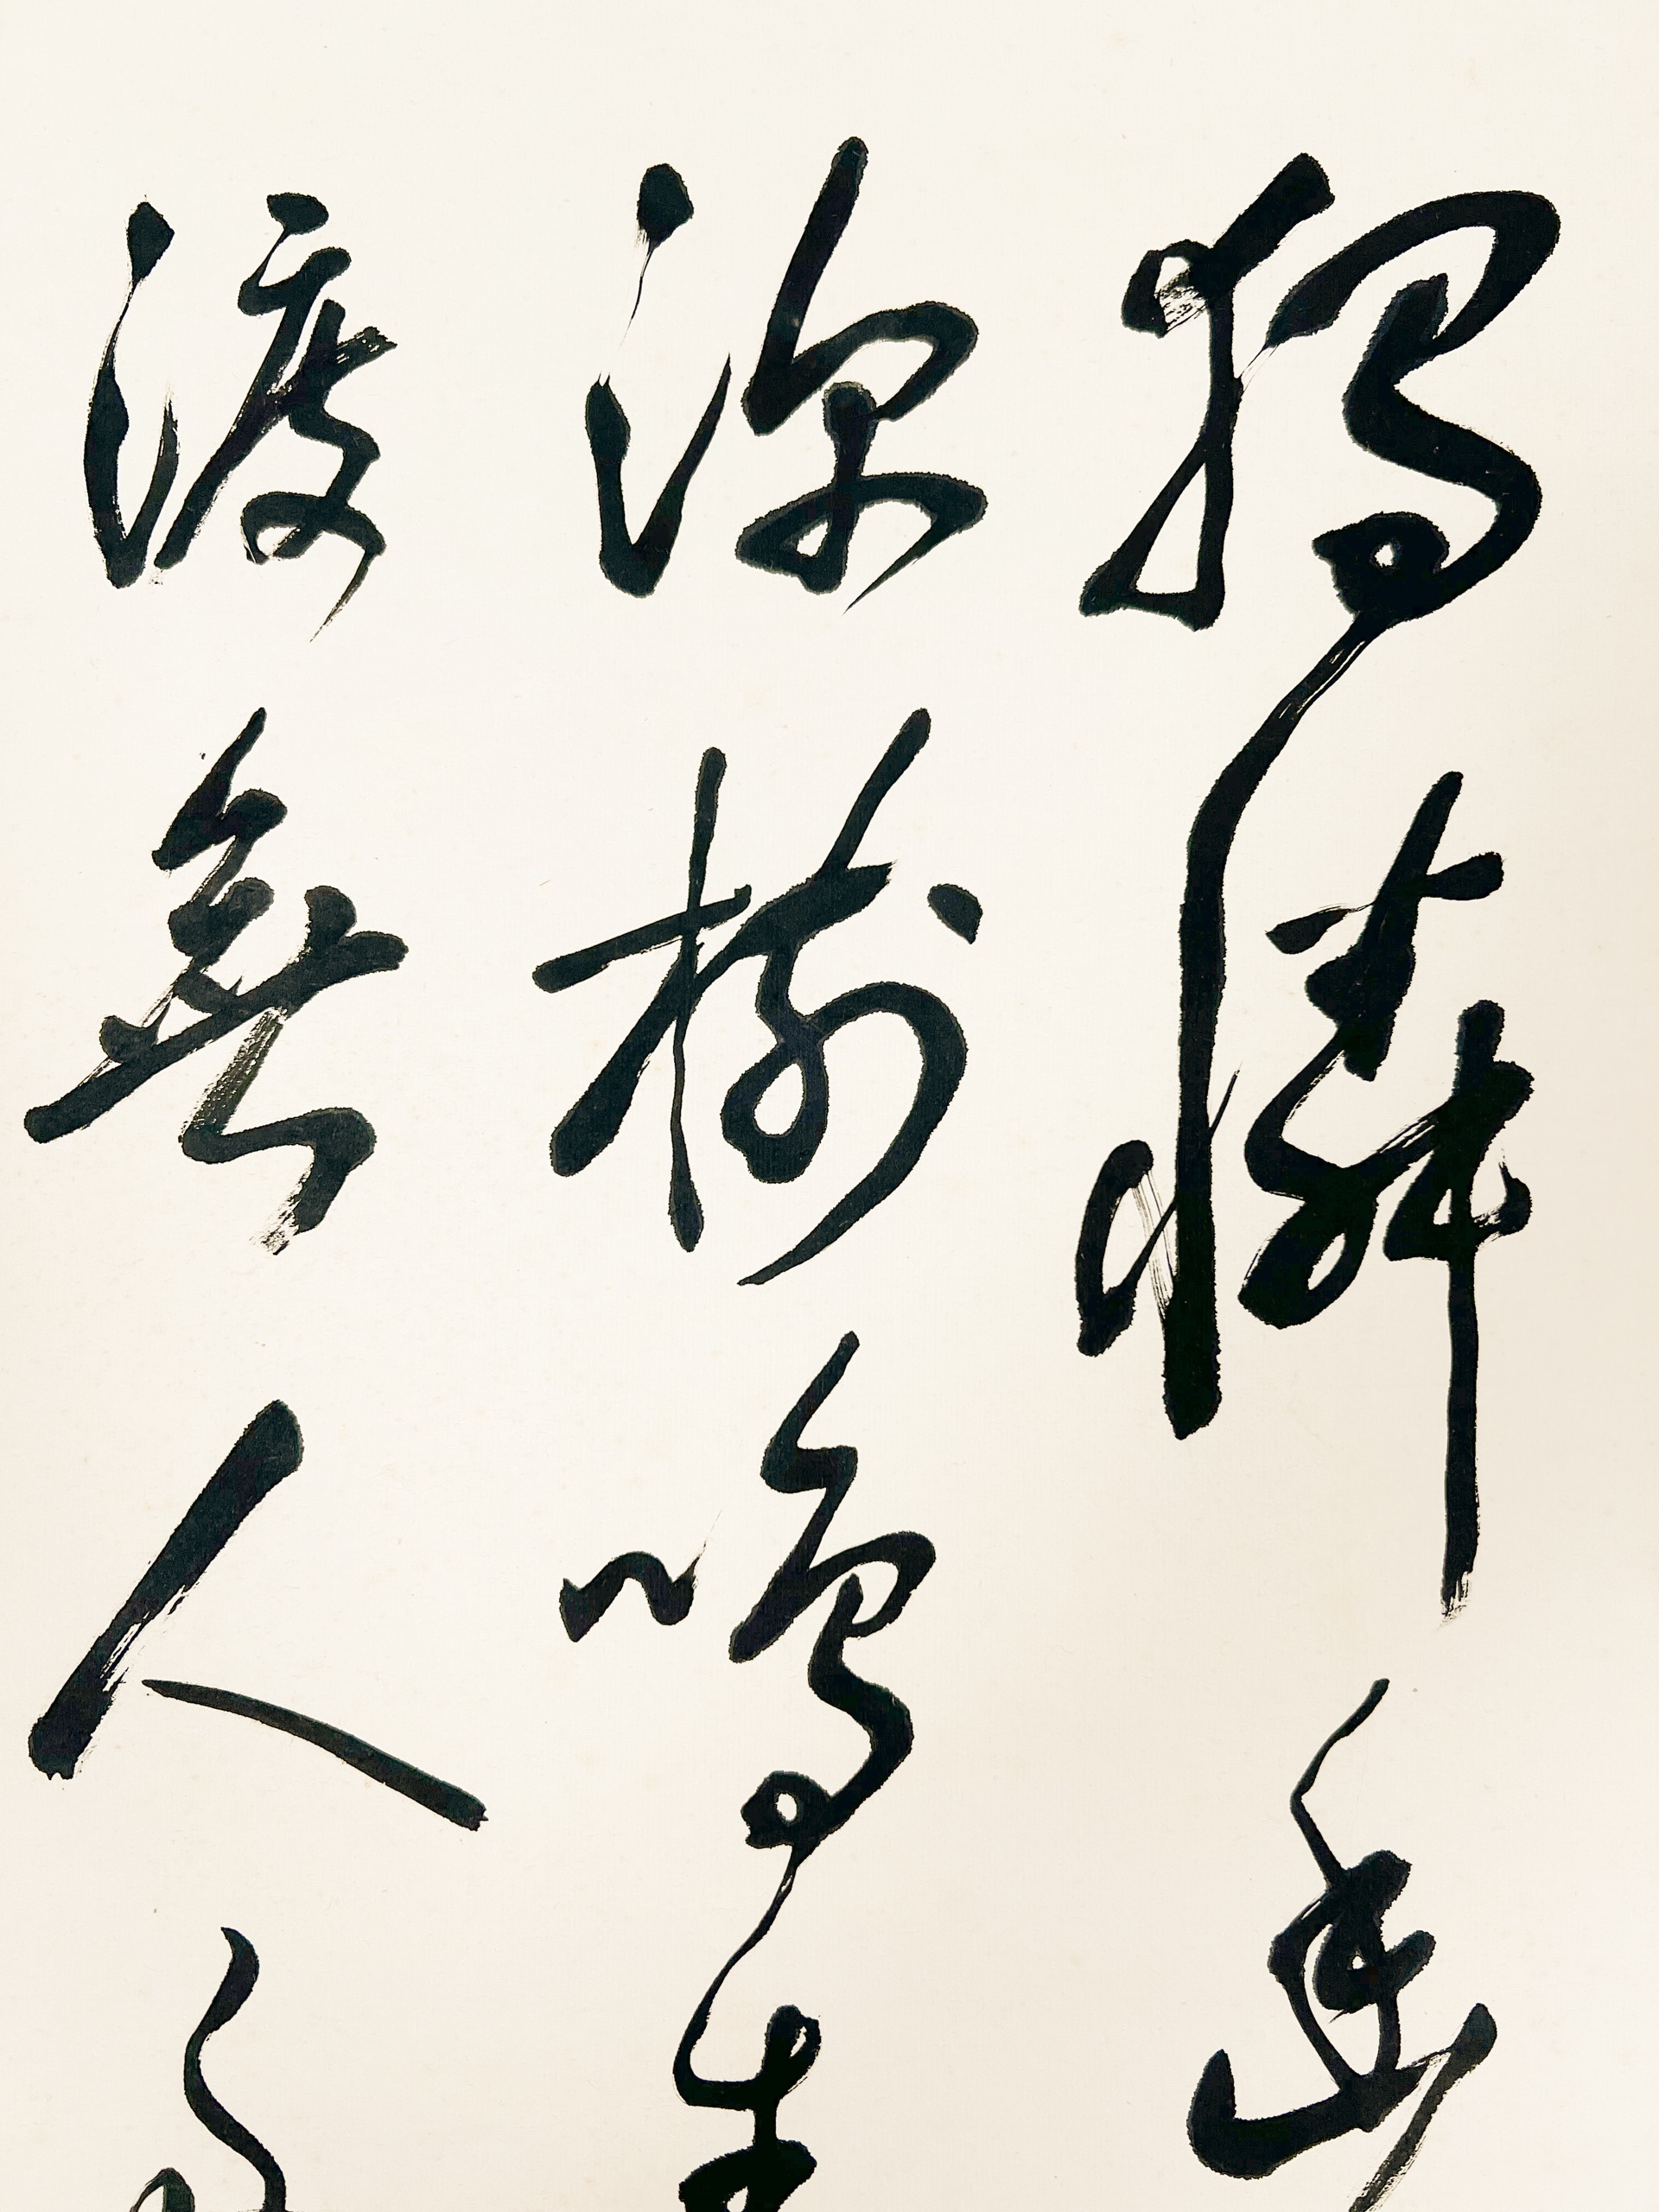 獨憐幽
深樹鳴春
渡無人